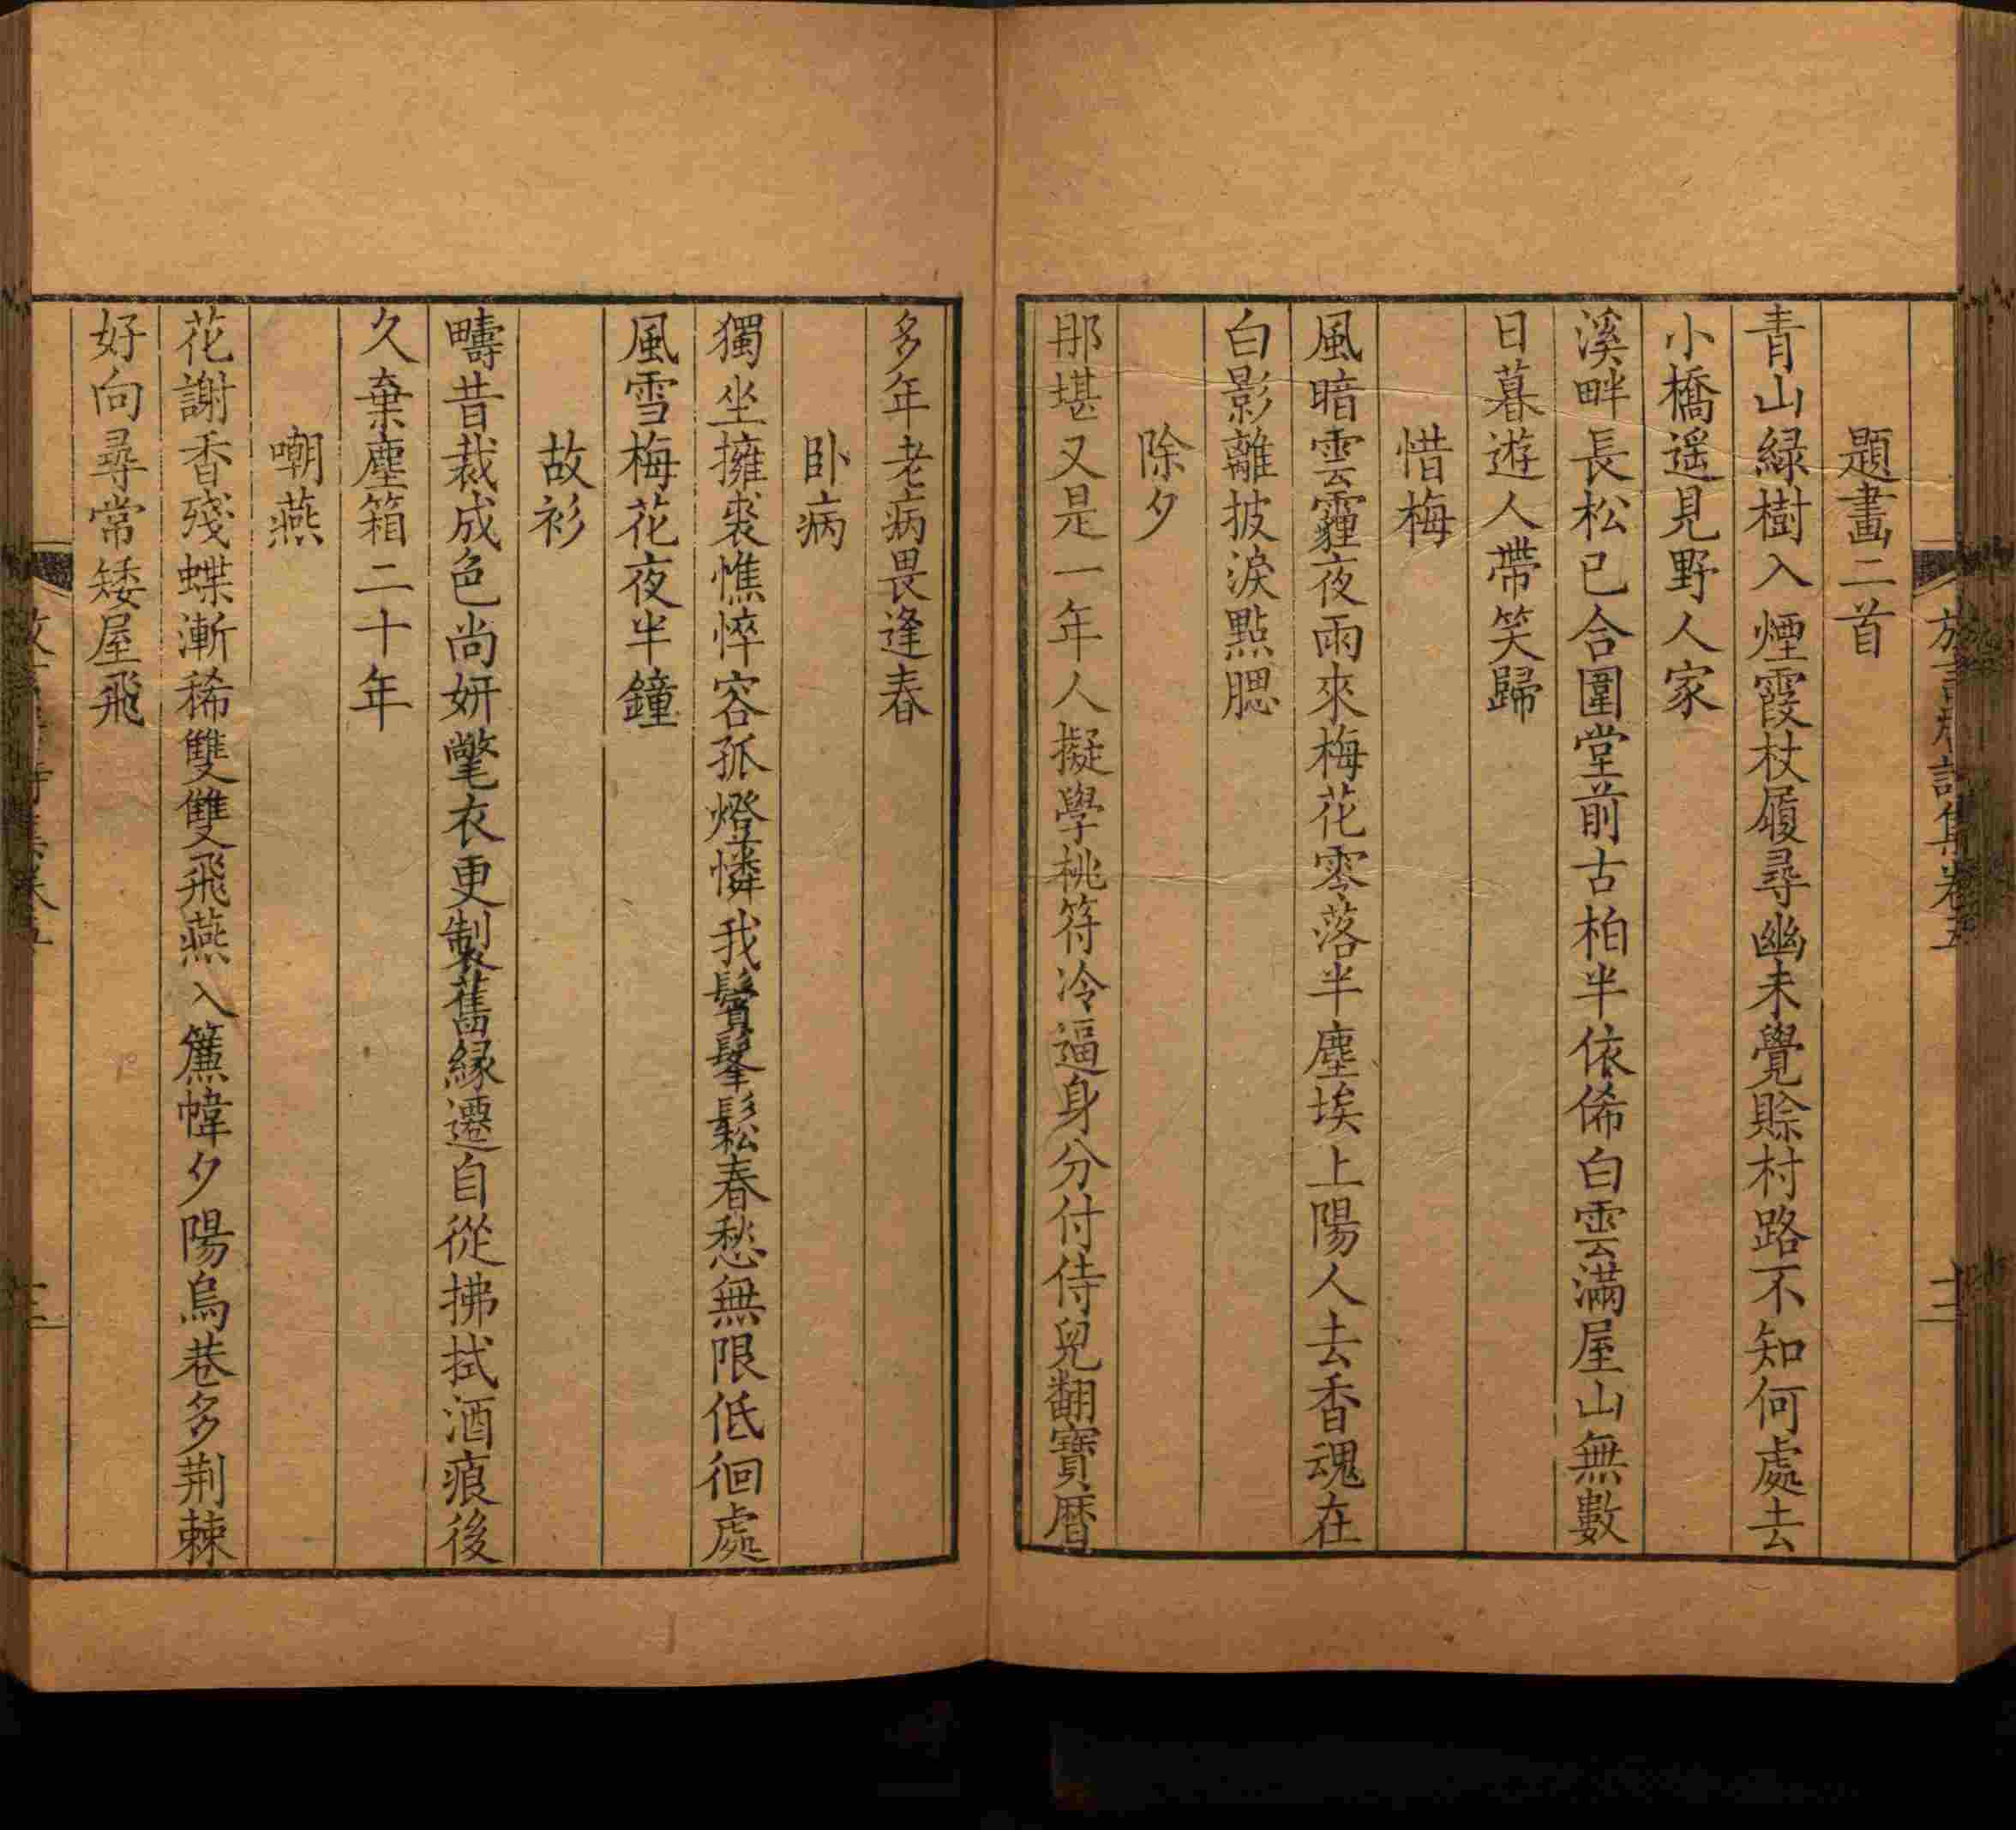 題畫二首
青山緑樹入煙霞杖履尋幽未覺賒村路不知何處去
小橋遥見野人家
溪畔長松已合圍堂前古柏半依俙白雲滿屋山無數
日暮遊人帶笑歸
惜梅
風暗雲霾夜雨來梅花零落半塵埃上陽人去香魂在
白影離披淚點腮
除夕
那堪又是一年人擬學桃符冷逼身分付侍兒翻寶曆
多年老病畏逢春
卧病
獨坐擁裘憔悴容孤燈憐我鬢鬅鬆春愁無限低徊處
風雪梅花夜半鐘
故衫
疇昔裁成色尚妍氅衣更製舊緣遷自從拂拭酒痕後
久棄塵箱二十年
嘲燕
花謝香殘蝶漸稀雙雙飛燕入簾幃夕陽烏巷多荆棘
好向尋常矮屋飛